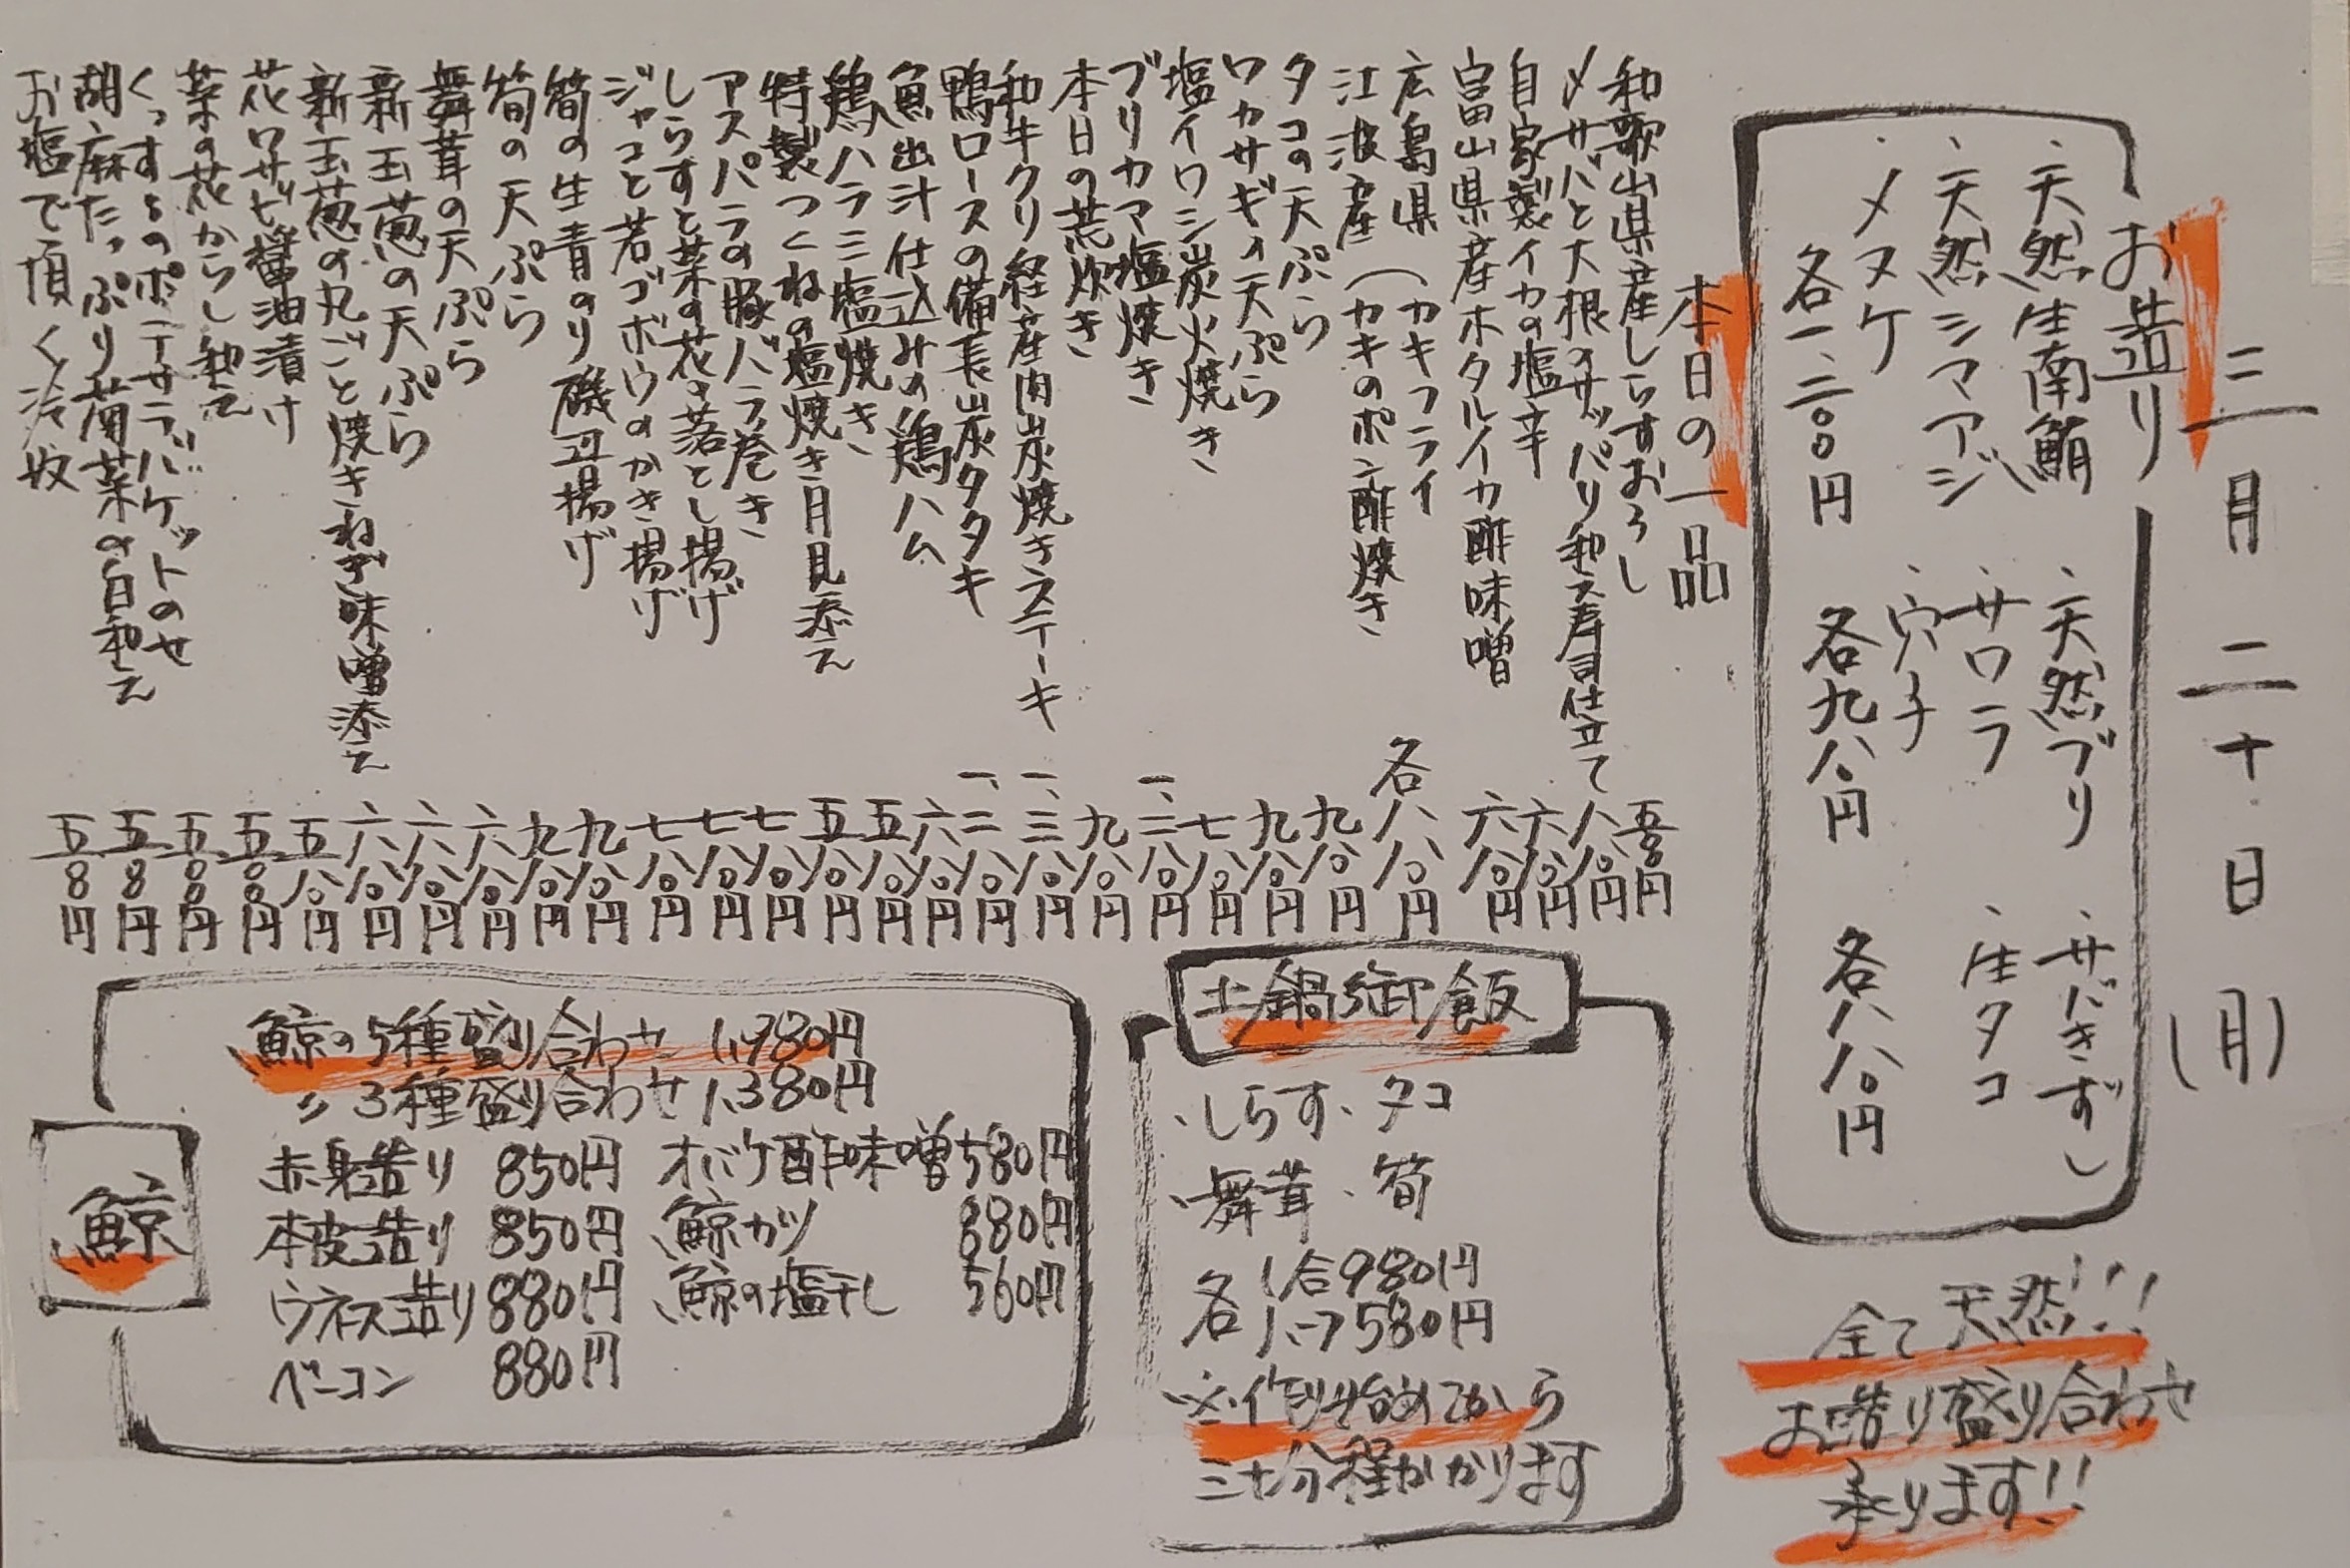 三月二十日(月)
お造り
、天然生南鮪
、天然シマアジ
、メヌケ
各一、二〇〇円
、天然ブリ
、サワラ
、穴子
各九八〇円
、サバきずし
、生タコ
各八八〇円
全て天然!!!
お造り盛り合わせ
承ります!!
本日の一品
和歌山県産しらすおろし 五〇〇円
〆サバと大根のサッパリ和え寿司仕立て 八八〇円
自家製イカの塩辛 六八〇円
富山県産ホタルイカ酢味噌 六八〇円
広島県
江波産(カキフライ
カキのポン酢焼き 各八八〇円
タコの天ぷら 九八〇円
ワカサギの天ぷら 九八〇円
塩イワシ炭火焼き 七八〇円
ブリカマ塩焼き 一、二八〇円
本日の荒炊き 九八〇円
和牛クリ経産肉炭焼きステーキ 一、三八〇円
鴨ロースの備長炭タタキ 一、二八〇円
魚出汁仕込みの鶏ハム 六八〇円
鶏ハラミ塩焼き 五八〇円
特製つくねの塩焼き月見添え 五八〇円
アスパラの豚バラ巻き 七八〇円
しらすと菜の花の落とし揚げ 七八〇円
ジャコと若ゴボウのかき揚げ 七八〇円
筍の生青のり磯辺揚げ 九八〇円
筍の天ぷら 九八〇円
舞茸の天ぷら 六八〇円
新玉葱の天ぷら 六八〇円
新玉葱の丸ごと焼きねぎ味噌添え 六八〇円
花ワサビ醤油漬け 五八〇円
菜の花からし和え 五〇〇円
くっするのポテサラ バケットのせ 五〇〇円
胡麻たっぷり菊菜の白和え 五〇〇円
お塩で頂く冷奴 五〇〇円
土鍋御飯
、しらす、タコ
、舞茸、筍
各1合980円
各ハーフ580円
※作り始めてから
三十分程かかります
鯨
鯨の5種盛り合わせ 1,980円
〃 3種盛り合わせ 1,380円
赤身造り 850円
本皮造り 850円
ウネス造り 880円
ベーコン 880円
オバケ酢味噌 580円
鯨カツ 880円
鯨の塩干し 560円